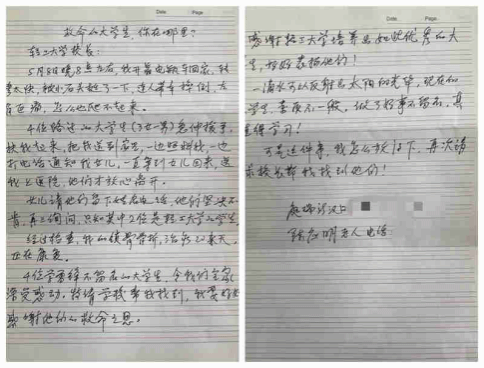 Date. Page.
救命的大学生,你在哪里?
轻工大学校长:
5月8日晚,8点左右,我开着电瓶车回家,转
弯太快,被小石头挺了一下,连人带车摔倒,左
怎么也爬不起来。
4位路过的大学生(3女一男)急忙接手,
扶我起来,把我送到后,一边照料我,一边
打电话通知我女儿,一直等到女儿回来,送
我上医院,他们才放心离开。
女儿请他们留下姓名电话,他们坚决不
肯,再三询问,只知其中2位是轻工大学的学生。
经过检查,我的骨骨折,治疗22来天,
正在康复。
4位学雷锋不留名的大学生,令我们全家
深受感动,特请学校帮我找到,我要好好
感谢他们的救命之恩。
Date. Page.
感谢轻工大学培养出如此优秀的大
学生,好好表扬他们!
一滴水可以反射出太阳的光辉,现在的
学生,素质不一般,做了好事不留名,真
值得学习!
可是这件事,我怎么放得下,再次请
求校长帮我找到他们!
武汉
明 本人电话